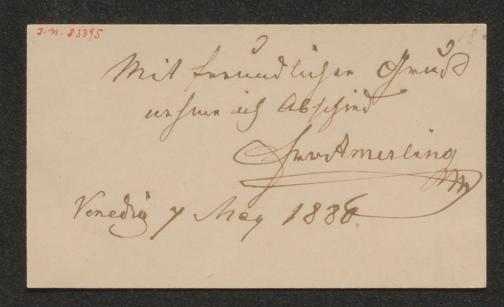 J.N. 83395
Mit freundlichen Gruß
nehme ich Abschied
Fr v Amerling
Venedig 7 May 1886